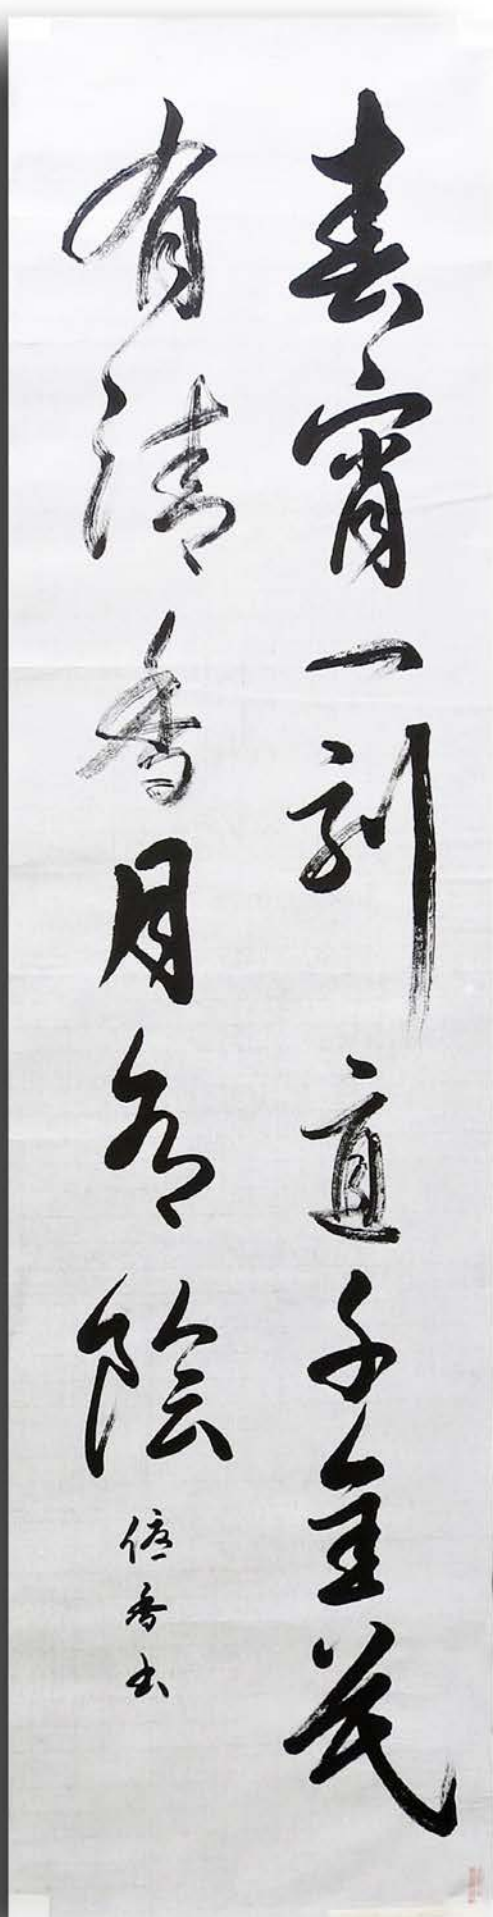 春宵一刻直千金花
有清香月有陰
香書